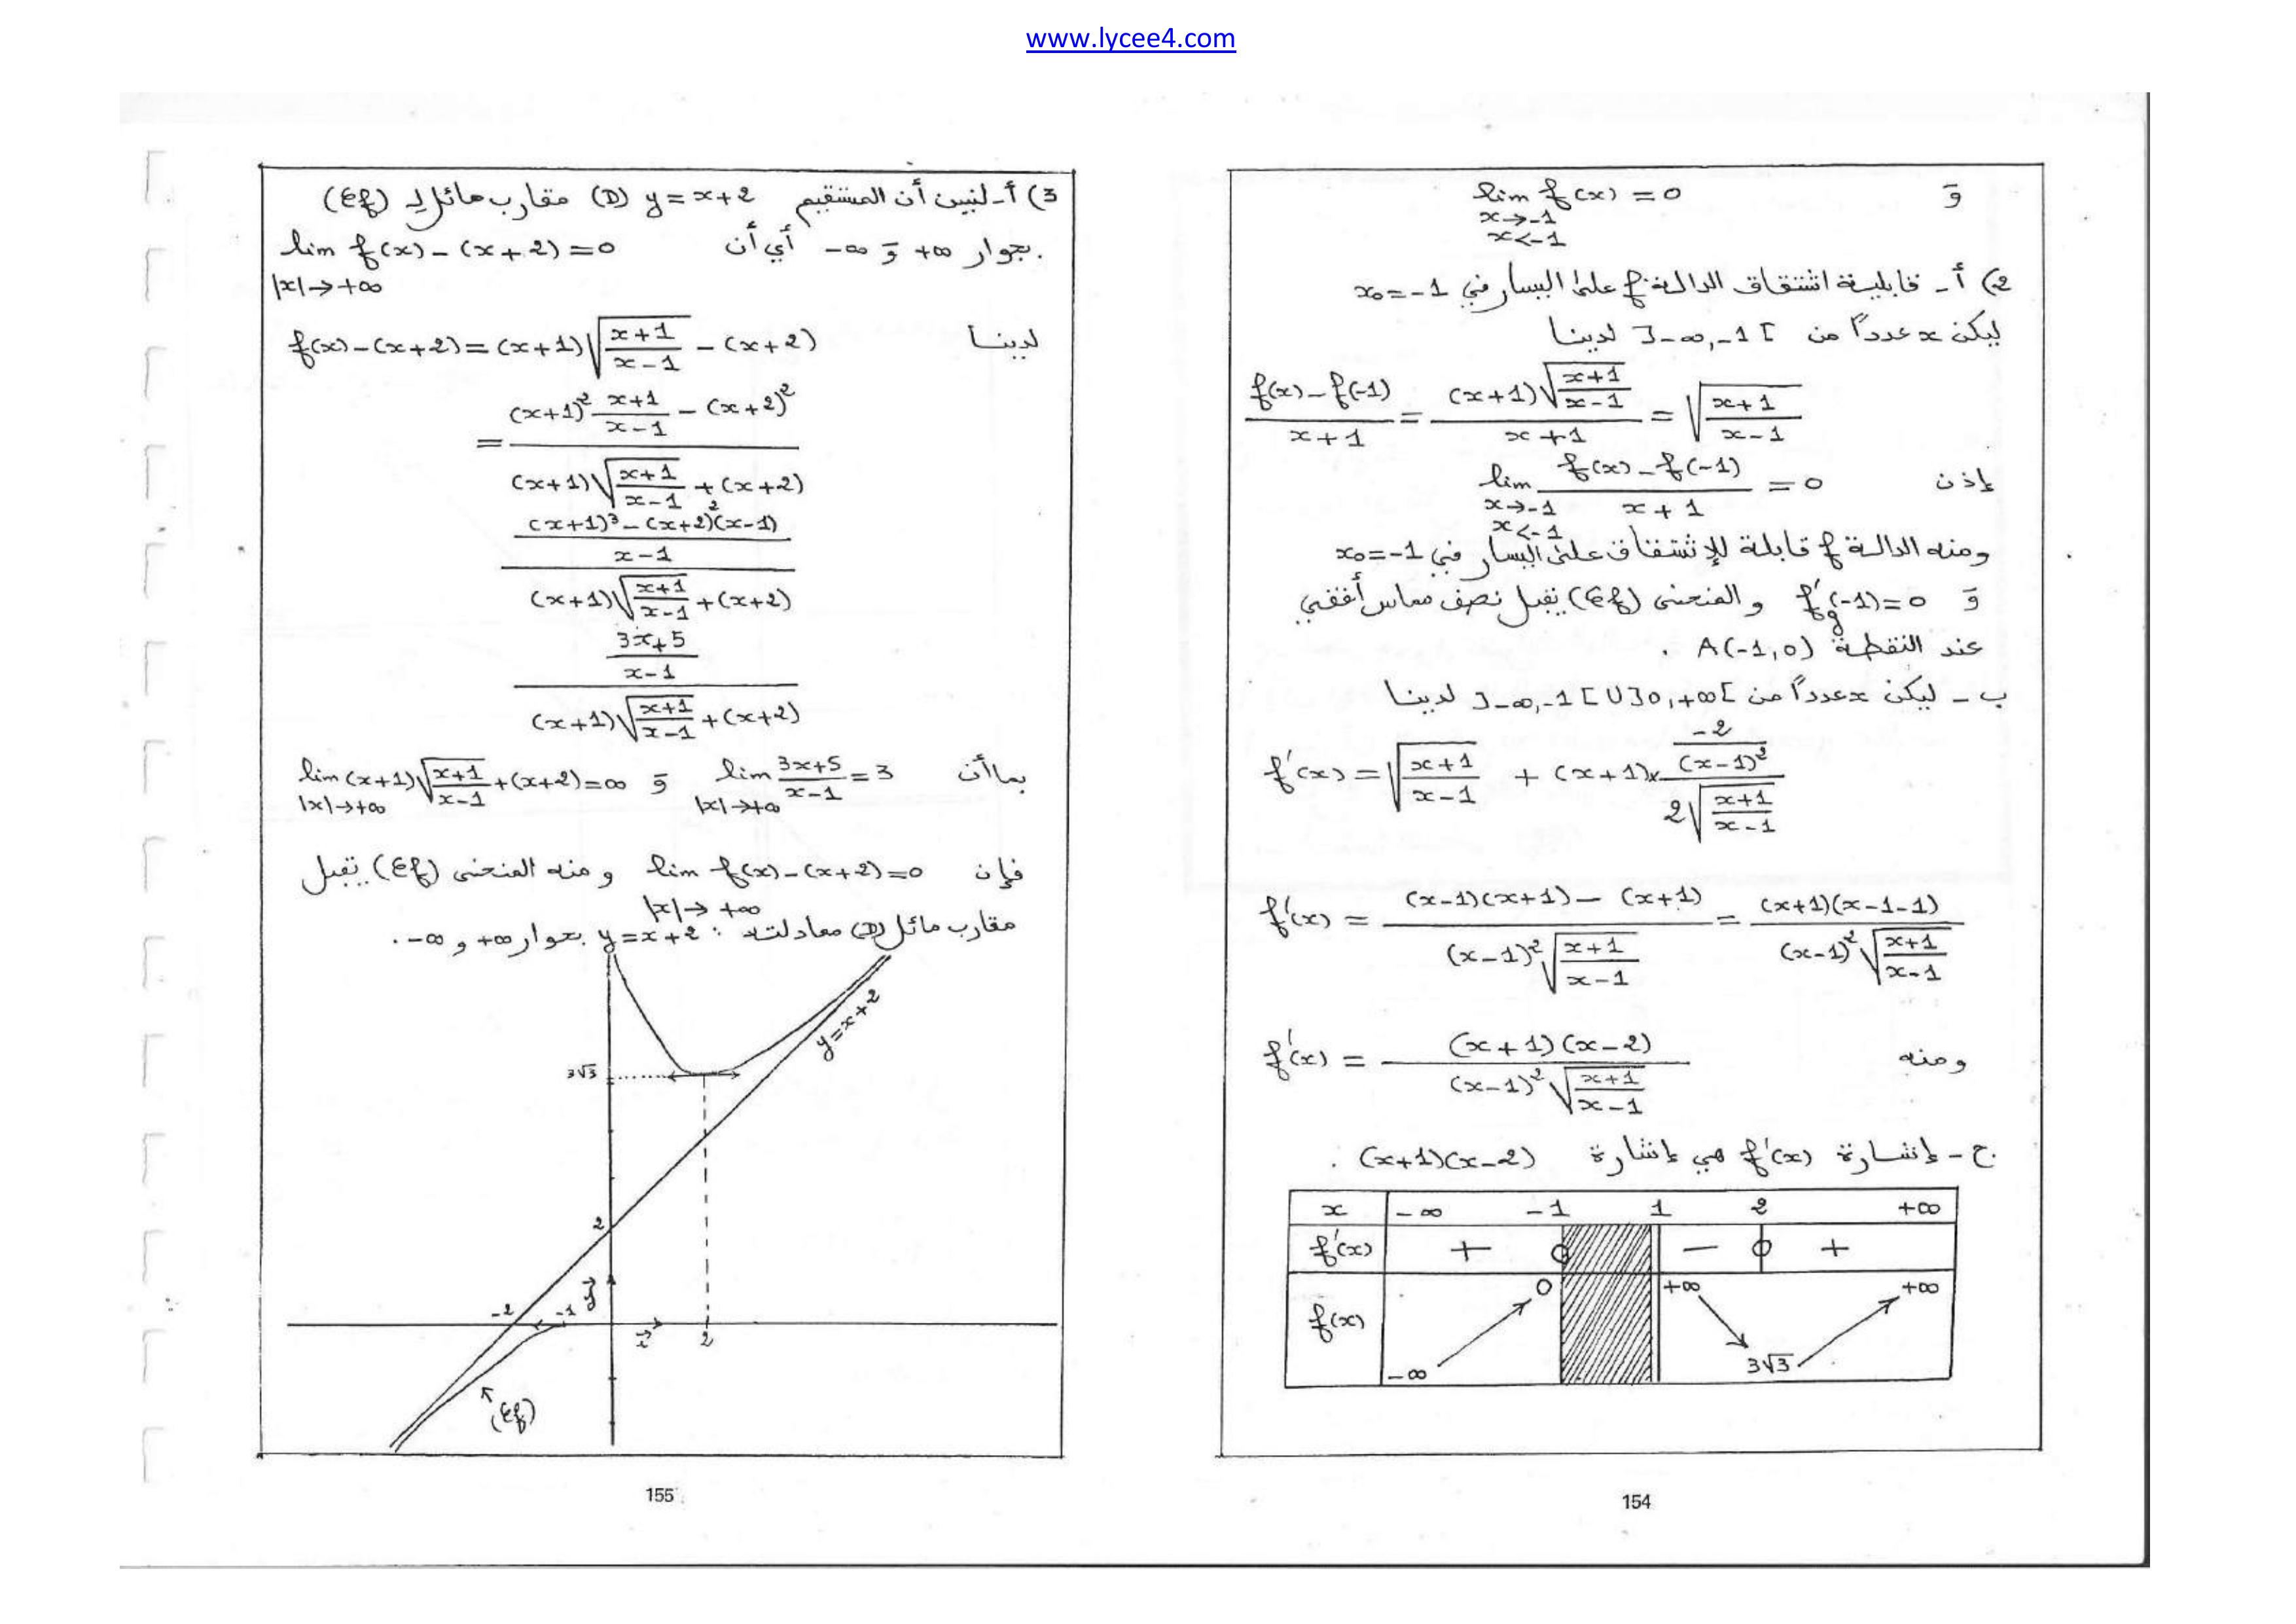 www.lycee4.com
و lim f(x) = 0
x→-1
x<-1
2) أ - قابلية اشتقاق الدالة f على اليسار في x₀=-1
ليكن x عدداً من ]-∞,-1[ لدينا
(f(x)-f(-1))/(x+1) = ((x+1)√((x+1)/(x-1)))/(x+1) = √((x+1)/(x-1))
إذن lim (f(x)-f(-1))/(x+1) = 0
x→-1
x<-1
ومنه الدالة f قابلة للإشتقاق على اليسار في x₀=-1
و f'g(-1)=0 والمنحنى (Cf) يقبل نصف مماس أفقي
عند النقطة A(-1,0) .
ب - ليكن x عدداً من ]-∞,-1[ U ]0,+∞[ لدينا
f'(x) = √((x+1)/(x-1)) + (x+1)× (-2/(x-1)²)/(2√((x+1)/(x-1)))
f'(x) = ((x-1)(x+1) - (x+1))/((x-1)²√((x+1)/(x-1))) = ((x+1)(x-1-1))/((x-1)²√((x+1)/(x-1)))
ومنه f'(x) = ((x+1)(x-2))/((x-1)²√((x+1)/(x-1)))
ج - إشارة f'(x) هي إشارة (x+1)(x-2) .
x -∞ -1 1 2 +∞
f'(x) + 0 - 0 +
f(x) -∞ 0 +∞ 3√3 +∞
154
3) أ - لنبين أن المستقيم (D) y=x+2 مقارب مائل لـ (Cf)
بجوار +∞ و -∞ أي أن lim f(x)-(x+2)=0
|x|→+∞
لدينا f(x)-(x+2) = (x+1)√((x+1)/(x-1)) - (x+2)
= ((x+1)² (x+1)/(x-1) - (x+2)²)/((x+1)√((x+1)/(x-1)) + (x+2))
(((x+1)³-(x+2)²(x-1))/(x-1))/((x+1)√((x+1)/(x-1)) + (x+2))
((3x+5)/(x-1))/((x+1)√((x+1)/(x-1)) + (x+2))
بما أن lim (3x+5)/(x-1) = 3 و lim (x+1)√((x+1)/(x-1)) + (x+2) = ∞
|x|→+∞ |x|→+∞
فإن lim f(x)-(x+2)=0 ومنه المنحنى (Cf) يقبل
|x|→+∞
مقارب مائل (D) معادلته : y=x+2 بجوار +∞ و -∞ .
y=x+2
3√3
2
j
-2 -1
i 2
(Cf)
155